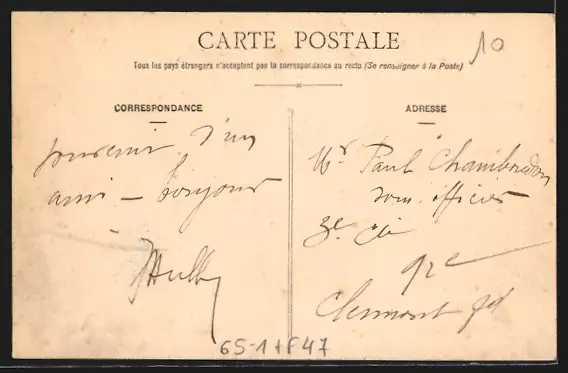 CARTE POSTALE
10
Tous les pays étrangers n'acceptent pas la correspondance au recto (Se renseigner à la Poste)
CORRESPONDANCE
souvenir d'un
ami — bonjour
ADRESSE
Mr Paul Chambordon
sous officier
3e Cie
92e
Clermont fd
65-1+F47